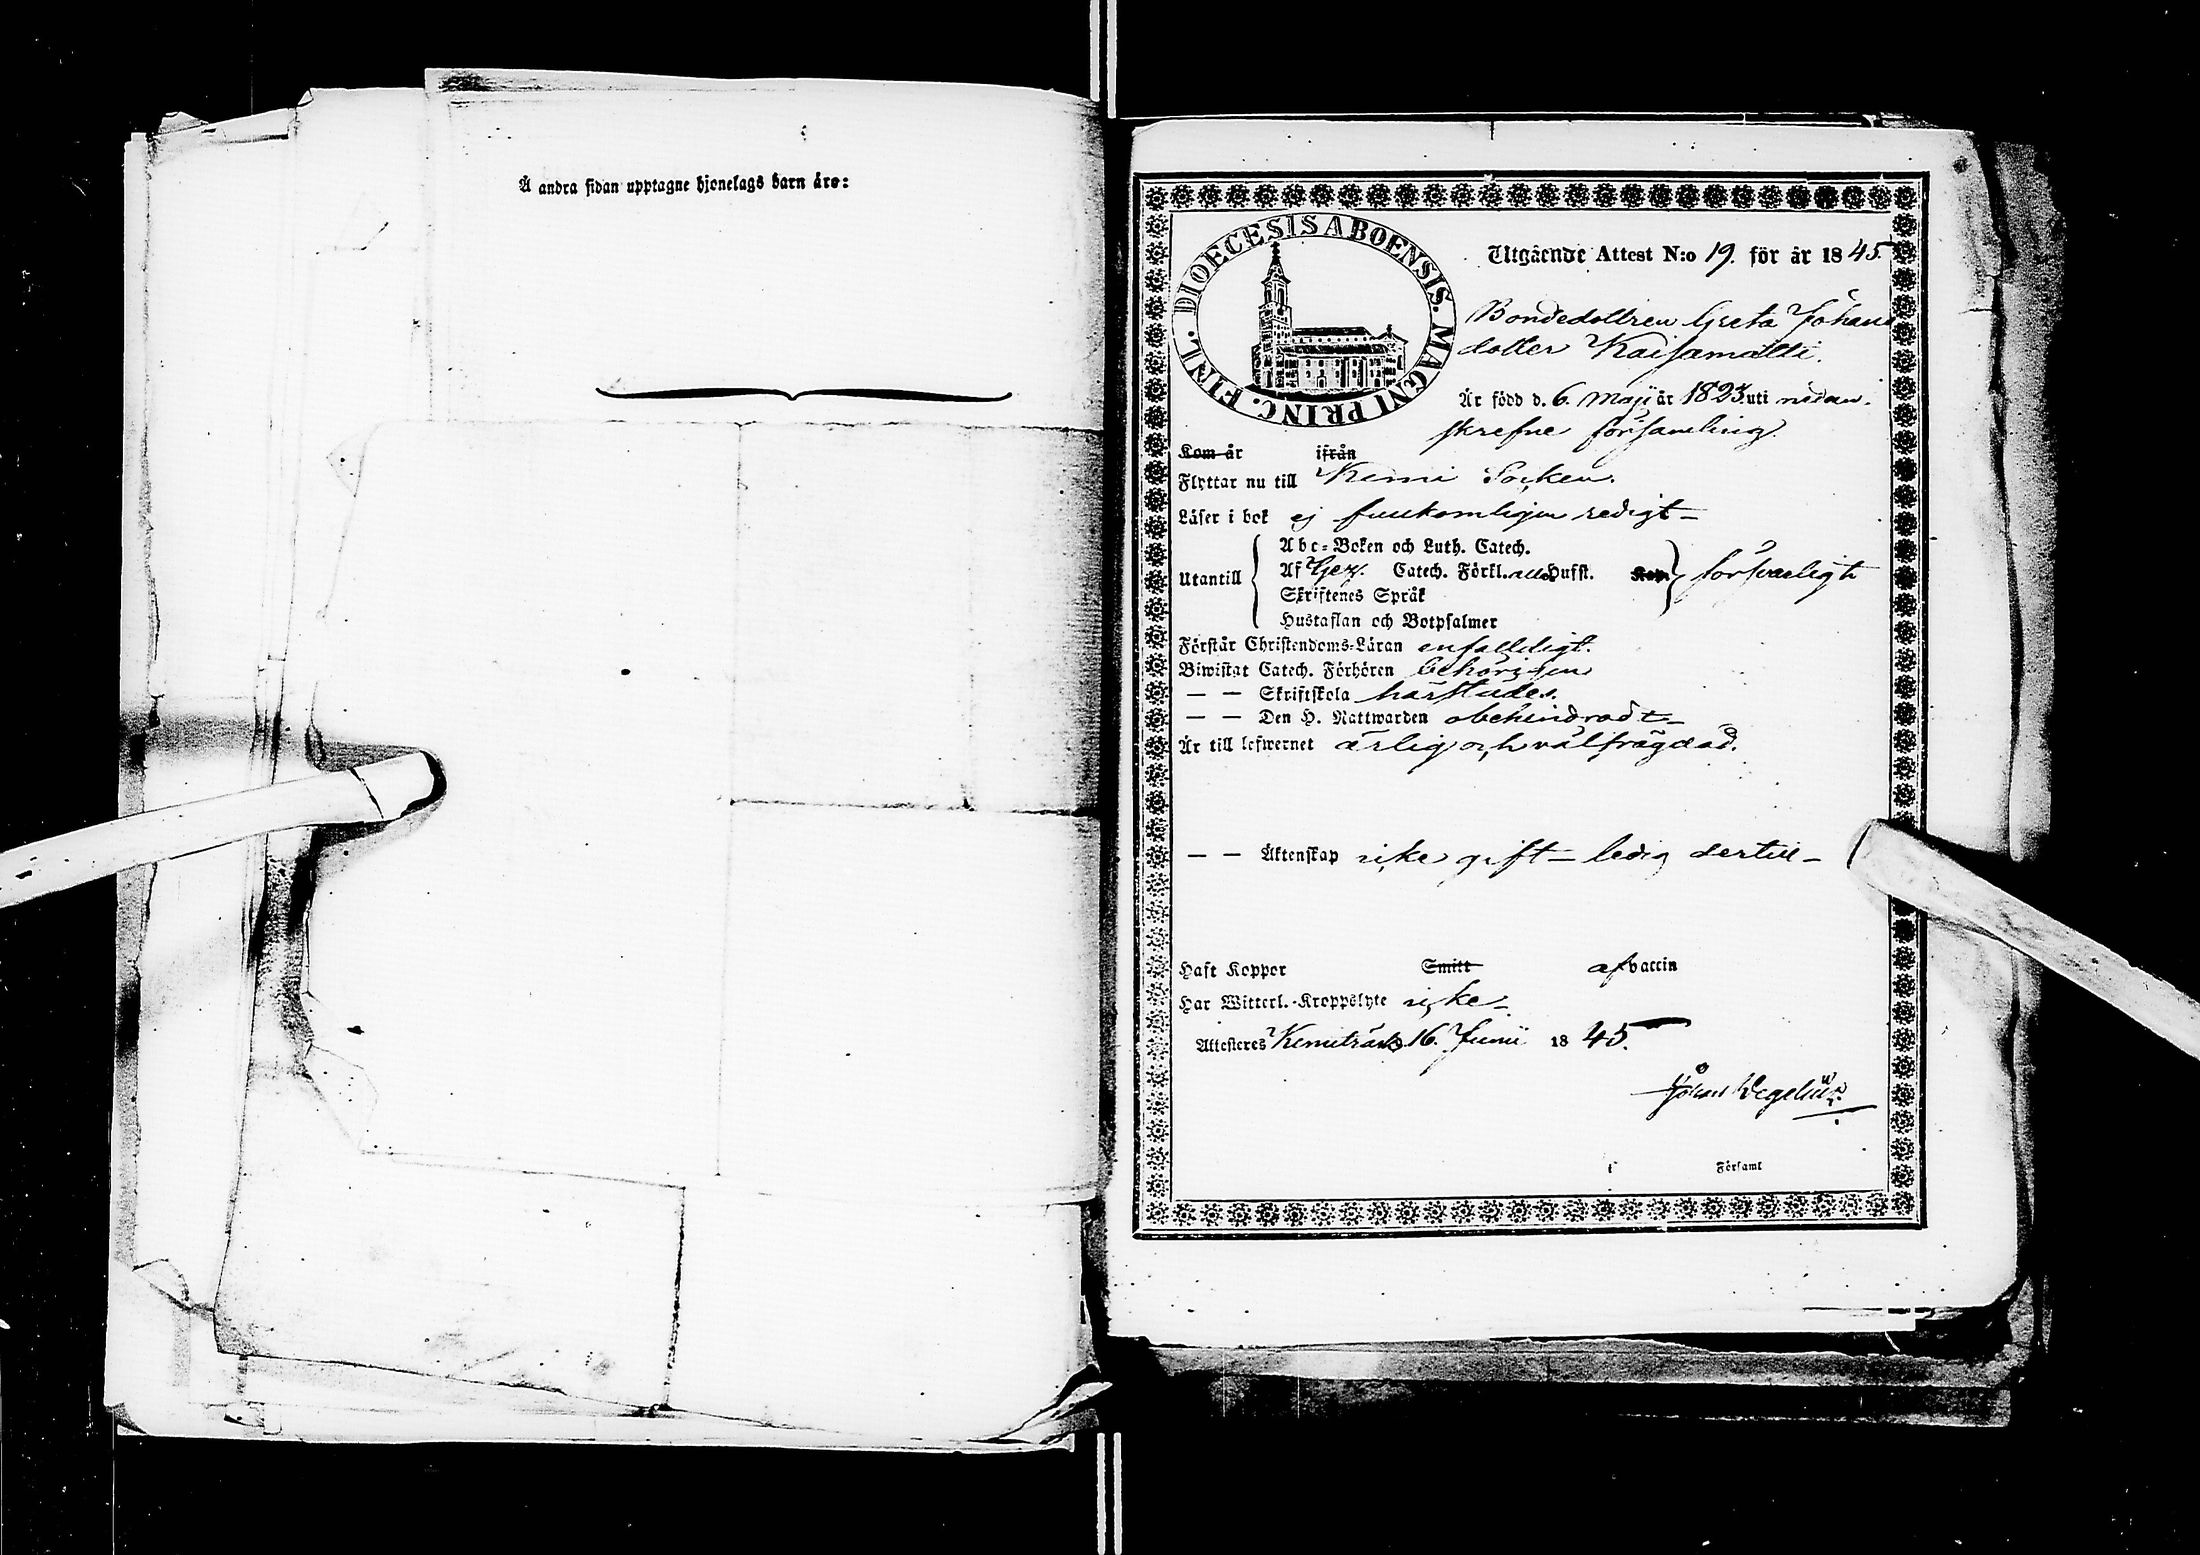 Å andra sidan upptagne hjonelags barn äro:
DIOECESIS ABOENSIS. MAGNI PRINC. FINL.
Utgående Attest N:o 19. för år 1845.
Bondedottren Greta Johans
dotter Kaisamatti.
Är född d. 6. Maji år 1823. uti nedan-
skrefne församling.
Kom år ifrån
Flyttar nu till Kemi Socken.
Läser i bok ej fullkomligen redigt –
Abc-Boken och Luth. Catech.
Utantill Af Gez. Catech. Förkl. alla Hufst. försvarligt
Skriftenes Språk
Hustaflan och Botpsalmer
Förstår Christendoms-Läran enfaldigt.
Biwistat Catech. Förhören behörigen
— — Skriftskola härstädes.
— — Den H. Nattwarden obehindradt –
Är till lefwernet ärlig och välfrägdad.
— — Äktenskap icke gift – ledig dertill –
Haft Koppor Smitt af vaccin
Har Witterl. Kroppslyte icke –
Attesteres Kemiträsk 16. Junii 1845.
Johan Wegelius
i Församl